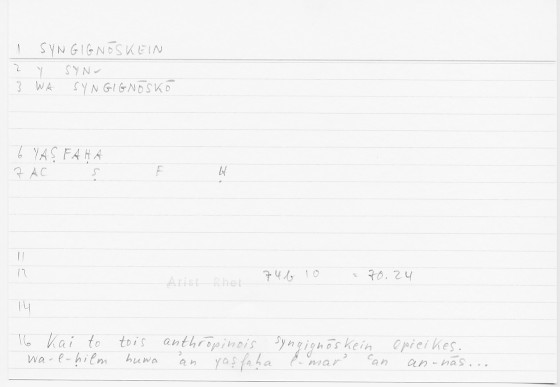 1 SYNGIGNŌSKEIN
2 Y SYN
3 WA SYNGIGNŌSKŌ
6 YAṢFAḤA
7 AC Ṣ F Ḥ
11
Arist Rhet 74b 10 = 70.24
14
16 Kai to tois anthrōpinois syngignōskein epieikes.
wa-l-ḥilm huwa ʾan yaṣfaḥa l-marʾ ʿan an-nās...